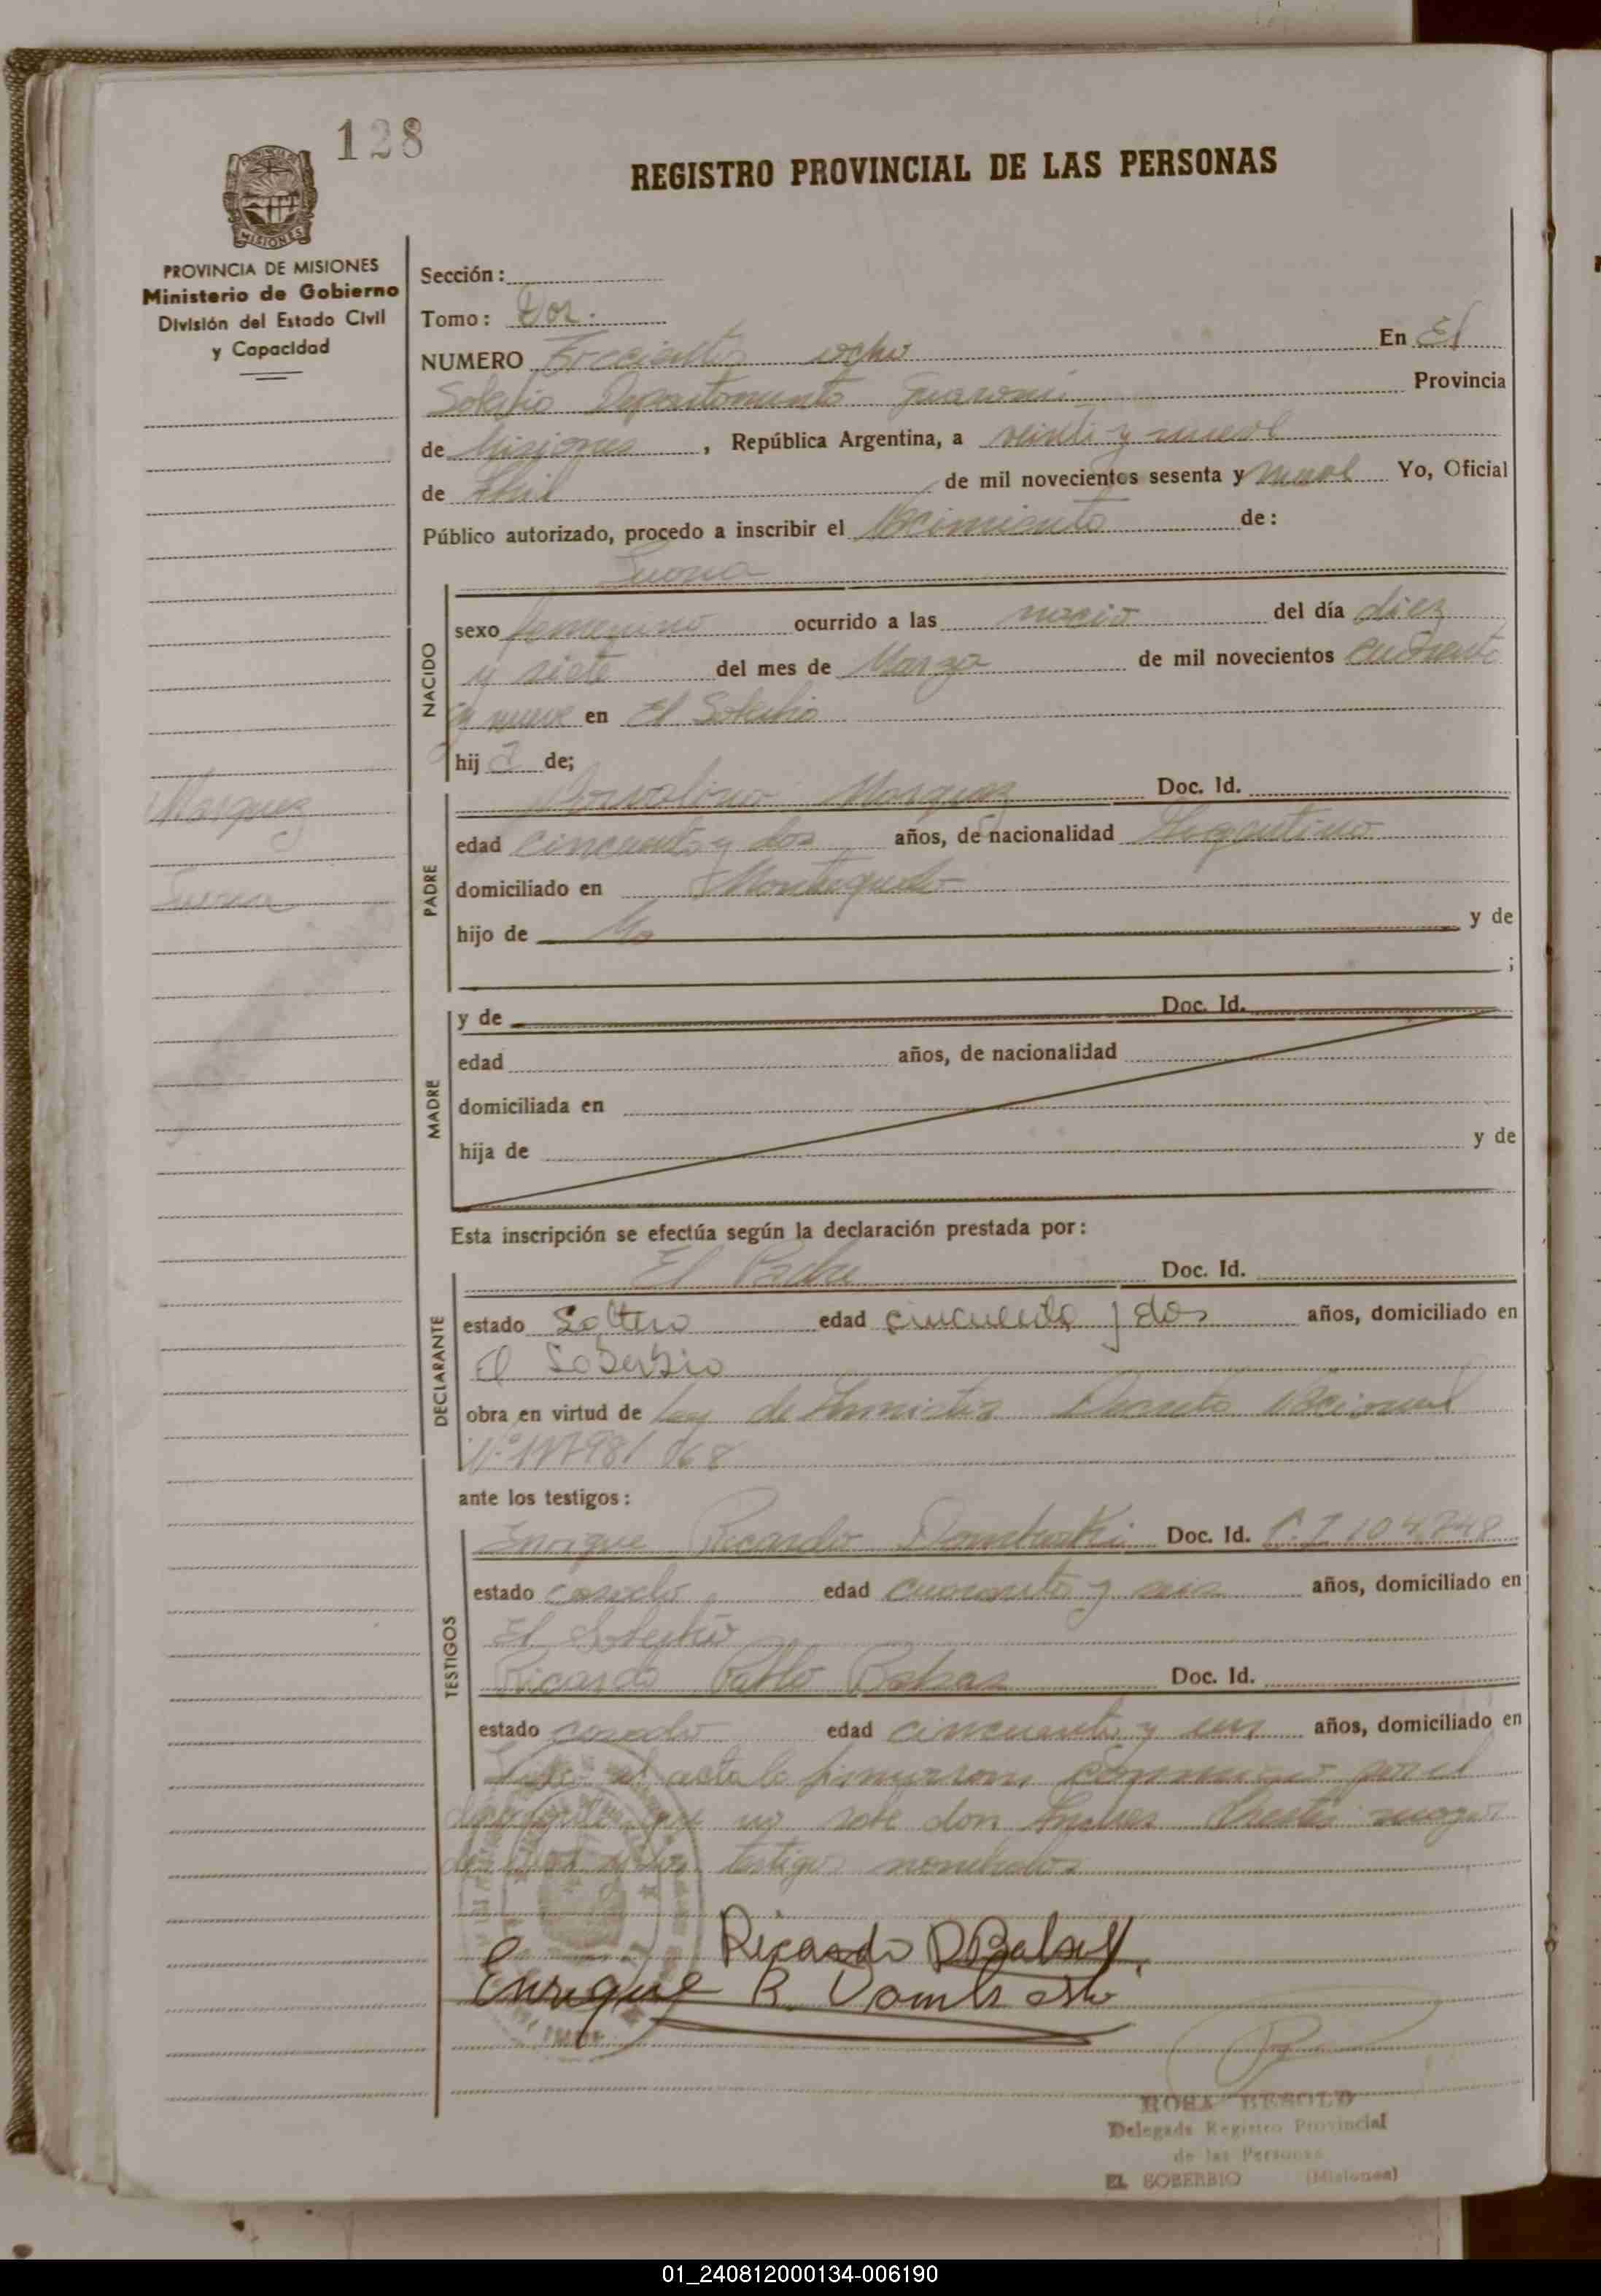 128
REGISTRO PROVINCIAL DE LAS PERSONAS
MISIONES
PROVINCIA DE MISIONES
Ministerio de Gobierno
División del Estado Civil
y Capacidad
Sección:
Tomo: Dos.
NUMERO Trecientos ocho En El
Soberbio Departamento Guarani Provincia
de Misiones, República Argentina, a veinti y nueve
de Abril de mil novecientos sesenta y nueve Yo, Oficial
Público autorizado, procedo a inscribir el Nacimiento de:
NACIDO
sexo femenino ocurrido a las nacio del día diez
y siete del mes de Marzo de mil novecientos cuarenta
y nueve en El Soberbio
hij a de;
Marquez
PADRE
Marquez Doc. Id.
edad cincuenta y dos años, de nacionalidad Argentino
domiciliado en Monteagudo
hijo de y de
;
MADRE
y de Doc. Id.
edad años, de nacionalidad
domiciliada en
hija de y de
Esta inscripción se efectúa según la declaración prestada por:
DECLARANTE
El Padre Doc. Id.
estado Soltero edad cincuenta y dos años, domiciliado en
El Soberbio
obra en virtud de Ley de Amnistia Decreto Nacional
Nº 17798/ 68
ante los testigos:
TESTIGOS
Enrique Ricardo Dombroski Doc. Id. C.I 104.848
estado casado edad cuarenta y seis años, domiciliado en
El Soberbio
Ricardo Pablo Doc. Id.
estado casado edad cincuenta y un años, domiciliado en
el acta la firmaron conmigo por el
declarante por no don mayor
testigos nombrados
Ricardo P
Enrique R. Dombroski
ROSA BESOLD
Delegada Registro Provincial
de las Personas
EL SOBERBIO (Misiones)
01_240812000134-006190